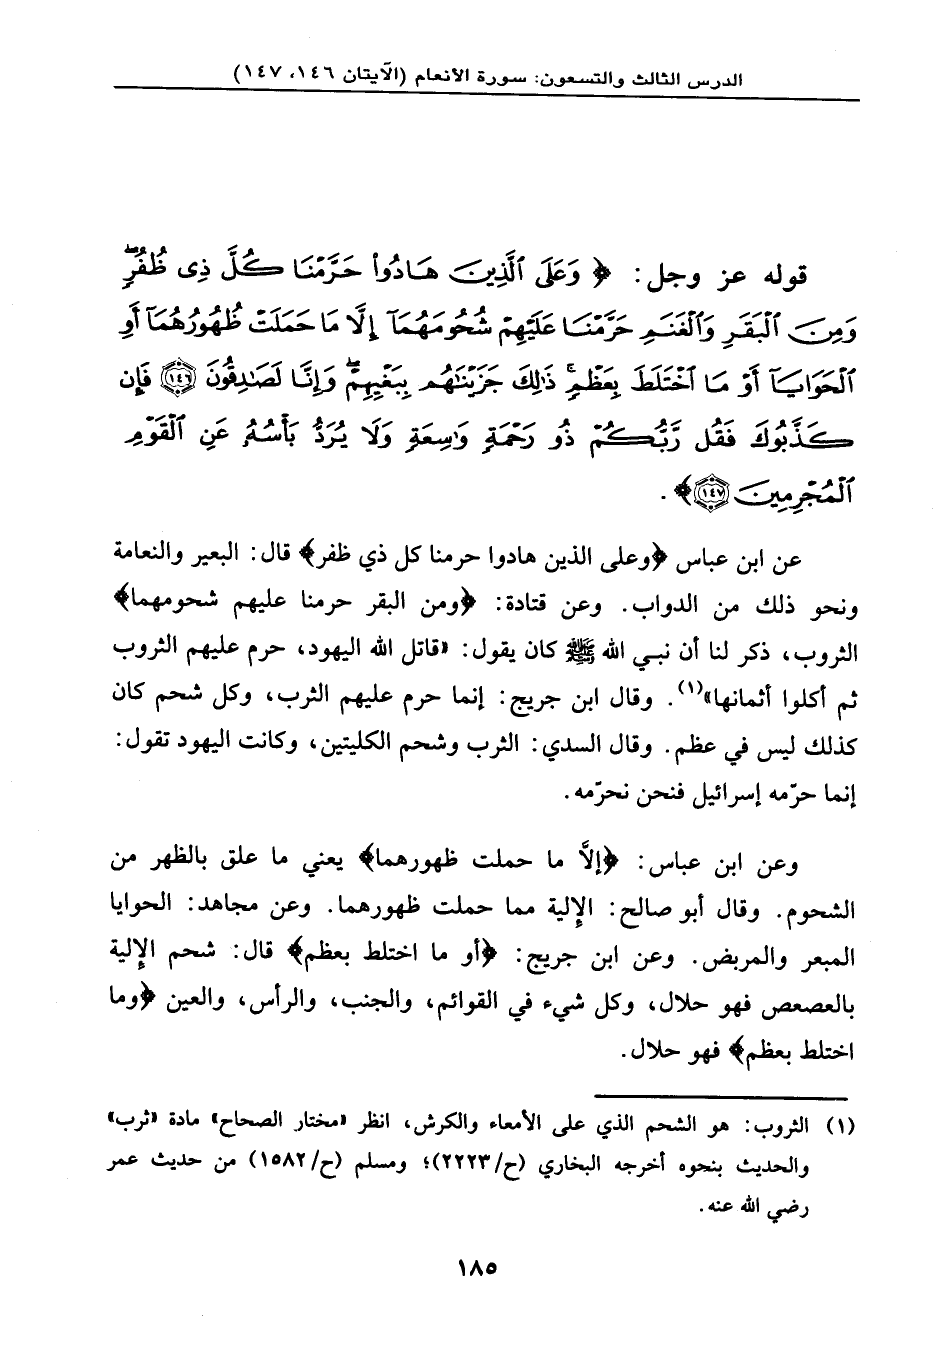 الدرس الثالث والتسعون: سورة الأنعام (الآيتان ١٤٦، ١٤٧)
قوله عز وجل: ﴿ وَعَلَى ٱلَّذِينَ هَادُوا۟ حَرَّمْنَا كُلَّ ذِى ظُفُرٍۖ
وَمِنَ ٱلْبَقَرِ وَٱلْغَنَمِ حَرَّمْنَا عَلَيْهِمْ شُحُومَهُمَآ إِلَّا مَا حَمَلَتْ ظُهُورُهُمَآ أَوِ
ٱلْحَوَايَآ أَوْ مَا ٱخْتَلَطَ بِعَظْمٍۚ ذَٰلِكَ جَزَيْنَٰهُم بِبَغْيِهِمْۖ وَإِنَّا لَصَٰدِقُونَ ١٤٦ فَإِن
كَذَّبُوكَ فَقُل رَّبُّكُمْ ذُو رَحْمَةٍ وَٰسِعَةٍ وَلَا يُرَدُّ بَأْسُهُۥ عَنِ ٱلْقَوْمِ
ٱلْمُجْرِمِينَ ١٤٧﴾ .
عن ابن عباس ﴿وعلى الذين هادوا حرمنا كل ذي ظفر﴾ قال: البعير والنعامة
ونحو ذلك من الدواب. وعن قتادة: ﴿ومن البقر حرمنا عليهم شحومهما﴾
الثروب، ذكر لنا أن نبي الله ﷺ كان يقول: «قاتل الله اليهود، حرم عليهم الثروب
ثم أكلوا أثمانها»(١). وقال ابن جريج: إنما حرم عليهم الثرب، وكل شحم كان
كذلك ليس في عظم. وقال السدي: الثرب وشحم الكليتين، وكانت اليهود تقول:
إنما حرّمه إسرائيل فنحن نحرّمه.
وعن ابن عباس: ﴿إلَّا ما حملت ظهورهما﴾ يعني ما علق بالظهر من
الشحوم. وقال أبو صالح: الإلية مما حملت ظهورهما. وعن مجاهد: الحوايا
المبعر والمربض. وعن ابن جريج: ﴿أو ما اختلط بعظم﴾ قال: شحم الإلية
بالعصعص فهو حلال، وكل شيء في القوائم، والجنب، والرأس، والعين ﴿وما
اختلط بعظم﴾ فهو حلال.
(١) الثروب: هو الشحم الذي على الأمعاء والكرش، انظر «مختار الصحاح» مادة «ثرب»
والحديث بنحوه أخرجه البخاري (ح/٢٢٢٣)؛ ومسلم (ح/١٥٨٢) من حديث عمر
رضي الله عنه.
١٨٥